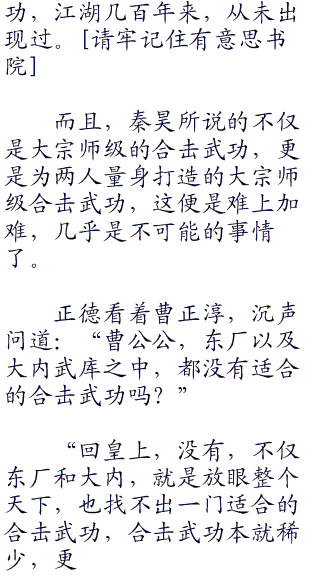 功，江湖几百年来，从未出
现过。[请牢记住有意思书
院]
而且，秦昊所说的不仅
是大宗师级的合击武功，更
是为两人量身打造的大宗师
级合击武功，这便是难上加
难，几乎是不可能的事情
了。
正德看着曹正淳，沉声
问道：“曹公公，东厂以及
大内武库之中，都没有适合
的合击武功吗？”
“回皇上，没有，不仅
东厂和大内，就是放眼整个
天下，也找不出一门适合的
合击武功，合击武功本就稀
少，更